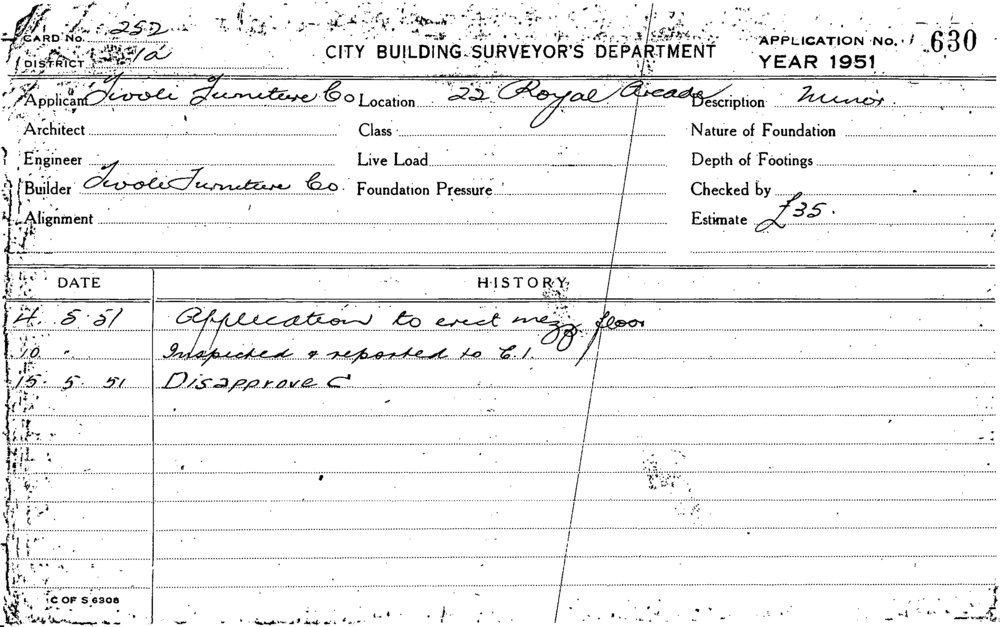 CARD No. 252
DISTRICT 1a
CITY BUILDING SURVEYOR'S DEPARTMENT
APPLICATION No. 630
YEAR 1951
Applicant Tivoli Furniture Co Location 22 Royal Arcade Description Minor.
Architect Class Nature of Foundation
Engineer Live Load Depth of Footings
Builder Tivoli Furniture Co. Foundation Pressure Checked by
Alignment Estimate £35.
DATE HISTORY
4. 5. 51 Application to erect mezz floor
10 " Inspected & reported to C.I.
15. 5. 51 Disapprove C
C OF S 6308